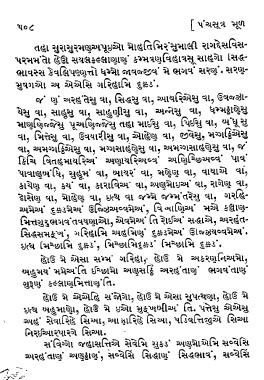 ૫૦૮ [ પંચસૂત્ર મૂળ
તહા સુરાસુરમણુઅપૂઇઓ મોહતિમિરંસુમાલી રાગદ્દોસવિસ-
પરમમંતો હેઊ સયલકલ્લાણાણં કમ્મવણવિહાવસૂ સાહગો સિદ્ધ-
ભાવસ્સ કેવલિપણ્ણત્તો ધમ્મો જાવજ્જીવં મે ભગવં સરણં, સરણ-
મુવગઓ અ એએસિં ગરિહામિ દુક્કડં.
જં ણં અરહંતેસુ વા, સિદ્ધેસુ વા, આયરિએસુ વા, ઉવજ્ઝા-
યેસુ વા, સાહૂસુ વા, સાહુણીસુ વા, અન્નેસુ વા, ધમ્મટ્ઠાણેસુ
માણણિજ્જેસુ પૂઅણિજ્જેસુ તહા માઇસુ વા, પિઇસુ વા, બંધૂસુ
વા, મિત્તેસુ વા, ઉવયારીસુ વા, ઓહેણં વા, જીવેસુ, મગ્ગટ્ઠિએસુ
વા, અમગ્ગટ્ઠિએસુ વા, મગ્ગસાહણેસુ વા, અમગ્ગસાહણેસુ વા, જં
કિંચિ વિતહમાયરિઅં અણાયરિઅવ્વં અણિચ્છિઅવ્વં પાવં
પાવાણુબંધિ, સુહુમં વા, બાયરં વા, મણેણ વા, વાયાએ વા,
કાયેણ વા, કયં વા, કારાવિઅં વા, અણુમોઇઅં વા, રાગેણ વા,
દોસેણ વા, મોહેણ વા, ઇત્થ વા જમ્મે જમ્મંતરેસુ વા, ગરહિ-
અમેઅં દુક્કડમેઅં ઉજ્ઝિયવ્વમેઅં, વિઆણિઅં મએ કલ્લાણ-
મિત્તગુરુભગવંતવયણાઓ, એવમેઅં તિ રોઇઅં સદ્ધાએ, અરહંત-
સિદ્ધસમક્ખં, ગરિહામિ અહમિણં દુક્કડમેઅં ઉજ્ઝિયવ્વમેઅં.
ઇત્થ મિચ્છામિ દુક્કડં, મિચ્છામિ દુક્કડં, મિચ્છામિ દુક્કડં.
હોઉ મે એસા સમ્મં ગરિહા, હોઉ મે અકરણનિયમો,
બહુમયં મમેઅંતિ ઇચ્છામો અણુસટ્ઠિં અરહંતાણં ભગવંતાણં
ગુરૂણં કલ્લાણમિત્તાણંતિ.
હોઉ મે એએહિં સંજોગો, હોઉ મે એસા સુપત્થણા, હોઉ મે
ઇત્થ બહુમાણો, હોઉ મે ઇઓ મુક્ખબીઅં તિ. પત્તેસુ એએસુ
અહં સેવારિહે સિઆ, આણારિહે સિઆ, પડિવત્તિજીએ સિઆ
નિરઇઆરપારગે સિઆ.
સંવિગ્ગો જહાસત્તિએ સેવેમિ સુકડં અણુમોએમિ સવ્વેસિં
અરહંતાણં અણુટ્ઠાણં, સવ્વેસિં સિદ્ધાણં સિદ્ધભાવં, સવ્વેસિં